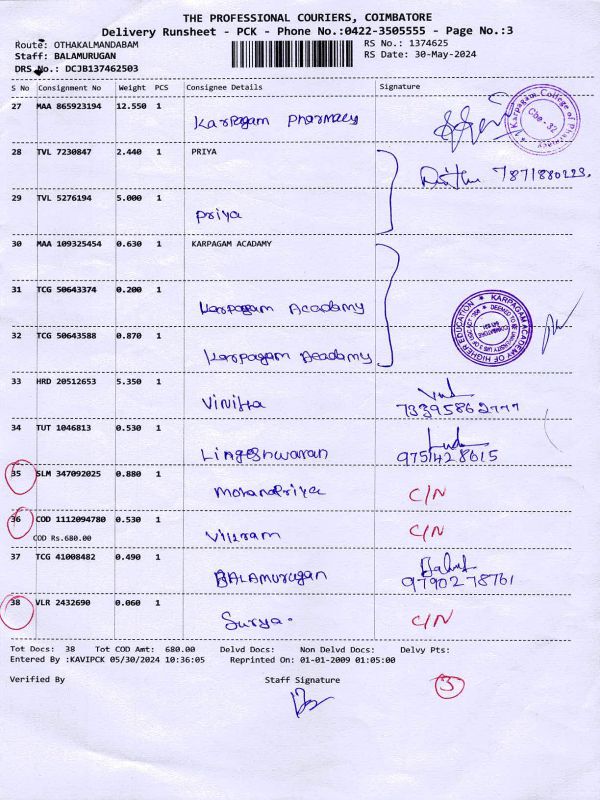 THE PROFESSIONAL COURIERS, COIMBATORE
Delivery Runsheet - PCK - Phone No.:0422-3505555 - Page No.:3
Route: OTHAKALMANDABAM RS No.: 1374625
Staff: BALAMURUGAN RS Date: 30-May-2024
DRS No.: DCJB137462503
S No Consignment No Weight PCS Consignee Details Signature
27 MAA 865923194 12.550 1 Karpagam Pharmacy
Karpagam College of Pharmacy Cbe-32
28 TVL 7230847 2.440 1 PRIYA
7871880223.
29 TVL 5276194 5.000 1 Priya
30 MAA 109325454 0.630 1 KARPAGAM ACADAMY
31 TCG 50643374 0.200 1 Karpagam Academy
KARPAGAM ACADEMY OF HIGHER EDUCATION
32 TCG 50643588 0.870 1 Karpagam Academy
33 HRD 20512653 5.350 1 Vinitta
73395862777
34 TUT 1046813 0.530 1 Lingeshwaran
9751428615
35 SLM 347092025 0.880 1 MohanaPriya C/N
36 COD 1112094780 0.530 1 Vikram C/N
COD Rs.680.00
37 TCG 41008482 0.490 1 BALAMURUGAN
9790278761
38 VLR 2432690 0.060 1 Surya. C/N
Tot Docs: 38 Tot COD Amt: 680.00 Delvd Docs: Non Delvd Docs: Delvy Pts:
Entered By :KAVIPCK 05/30/2024 10:36:05 Reprinted On: 01-01-2009 01:05:00
Verified By Staff Signature 3